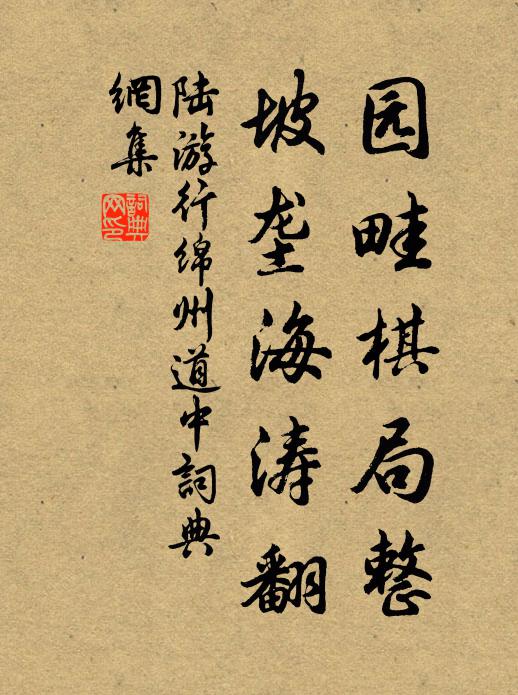 园畦棋局整
坡垄海涛翻
陆游行绵州道中詞典
網集
詞典网印